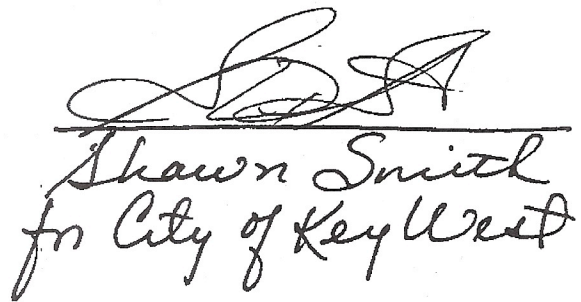 Shawn Smith
for City of Key West